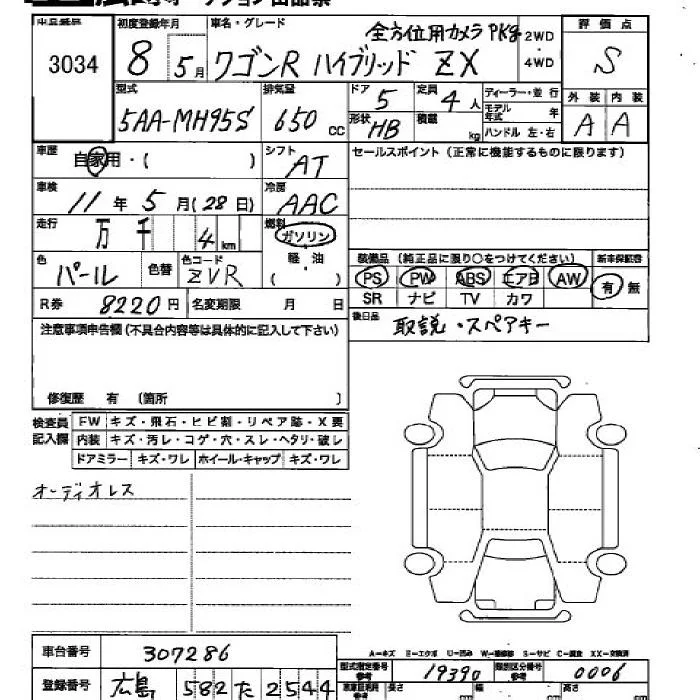 3034
初度登録年月
8 5月
車名・グレード
全方位用カメラPKg
ワゴンR ハイブリッド ZX
2WD
4WD
評価点
S
型式
5AA-MH95S
排気量
650 cc
ドア
5
定員
4人
形状
HB
積載
kg
ディーラー・並行
モデル年式 年
ハンドル 左・右
外装 内装
A A
車歴
自家用・( )
シフト
AT
セールスポイント(正常に機能するものに限ります)
車検
11年5月(28日)
冷房
AAC
走行
万 千 4km
燃料
ガソリン
軽・油
( )
色
パール
色替
色コード
ZVR
装備品(純正品に限り○をつけてください)
新車保証書
PS PW ABS エアB AW
SR ナビ TV カワ
有 無
R券 8220円
名変期限 月 日
後日品
取説・スペアキー
注意事項申告欄(不具合内容等は具体的に記入して下さい)
修復歴 有 〔箇所 〕
検査員記入欄
FW キズ・飛石・ヒビ割・リペア跡・X要
内装 キズ・汚レ・コゲ・穴・スレ・ヘタリ・破レ
ドアミラー キズ・ワレ ホイール・キャップ キズ・ワレ
オーディオレス
A—キズ E—エクボ U—凹み
車台番号 307286
型式指定番号 参考 19390
類別区分番号 参考 0006
登録番号 広島 582 た 2544
長さ cm
幅 cm
高さ cm